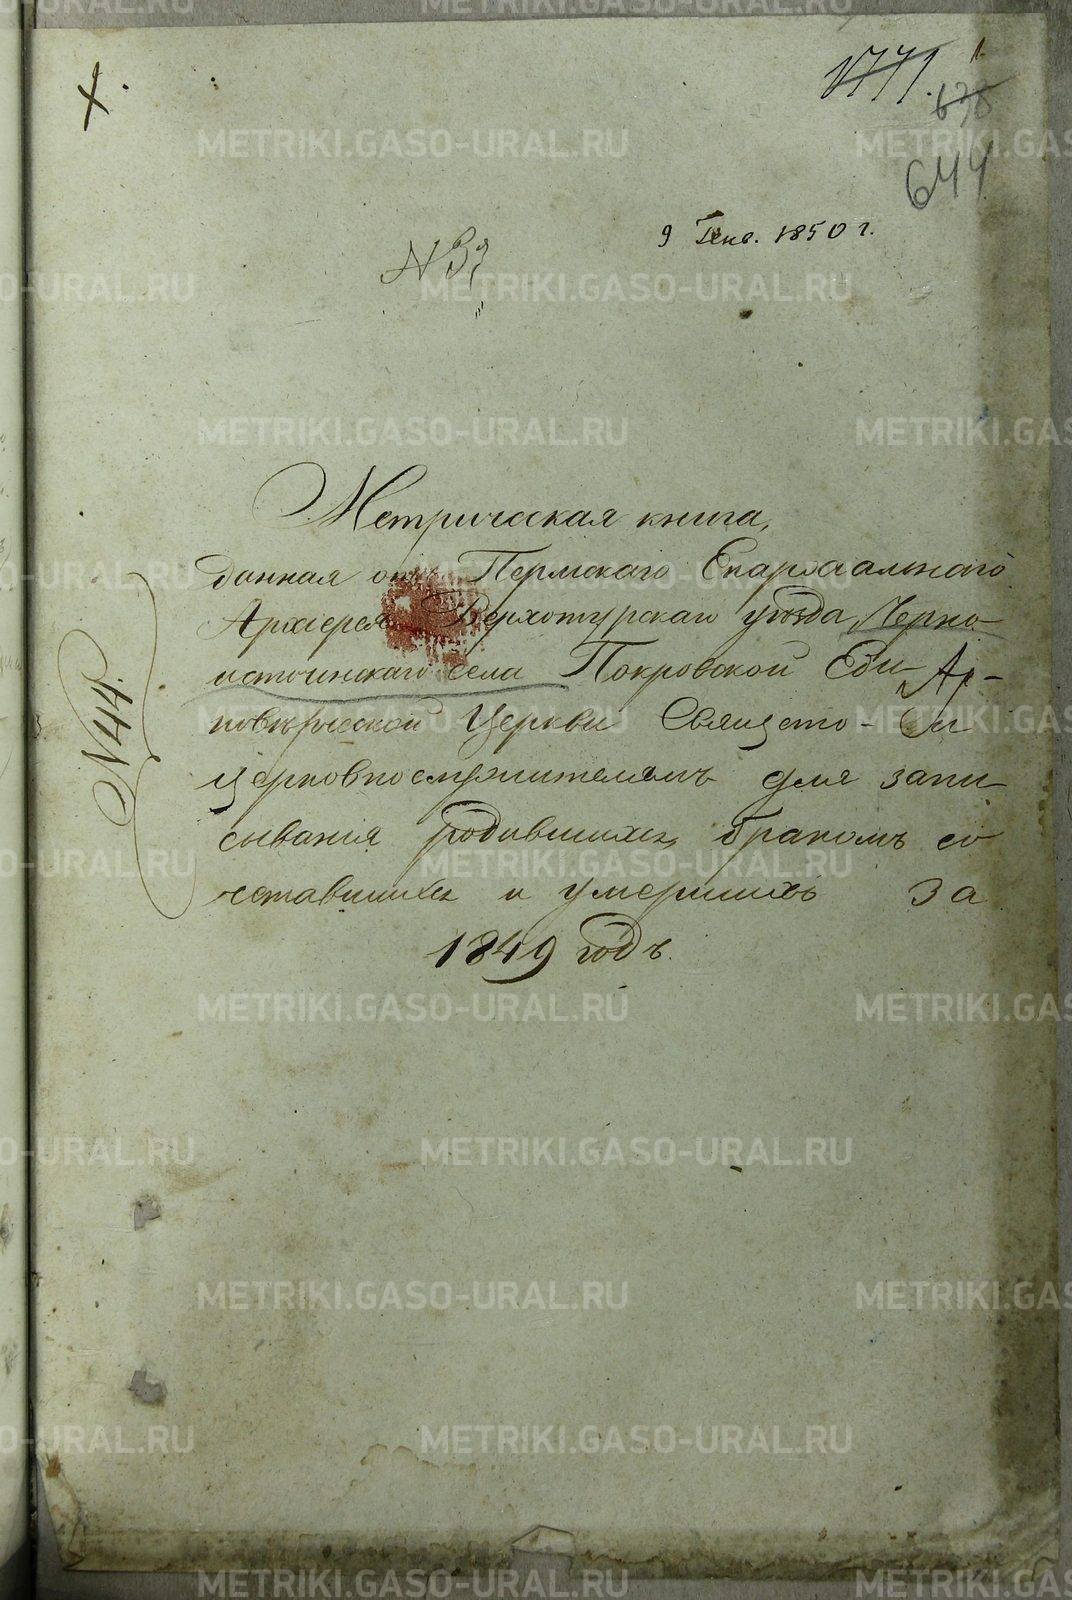 1771. 1
638
644
9 Генв. 1850 г.
N 33
Метрическая книга,
данная отъ Пермскаго Епархиальнаго
Архиерея Верхотурскаго уѣзда, Черно-
источинскаго села Покровской Еди-
новѣрческой Церкви Священно- и
церковнослужителямъ для запи-
сыванія родившихся, бракомъ со
четавшихся и умершихъ за
1849 годъ.
N 44.
METRIKI.GASO-URAL.RU